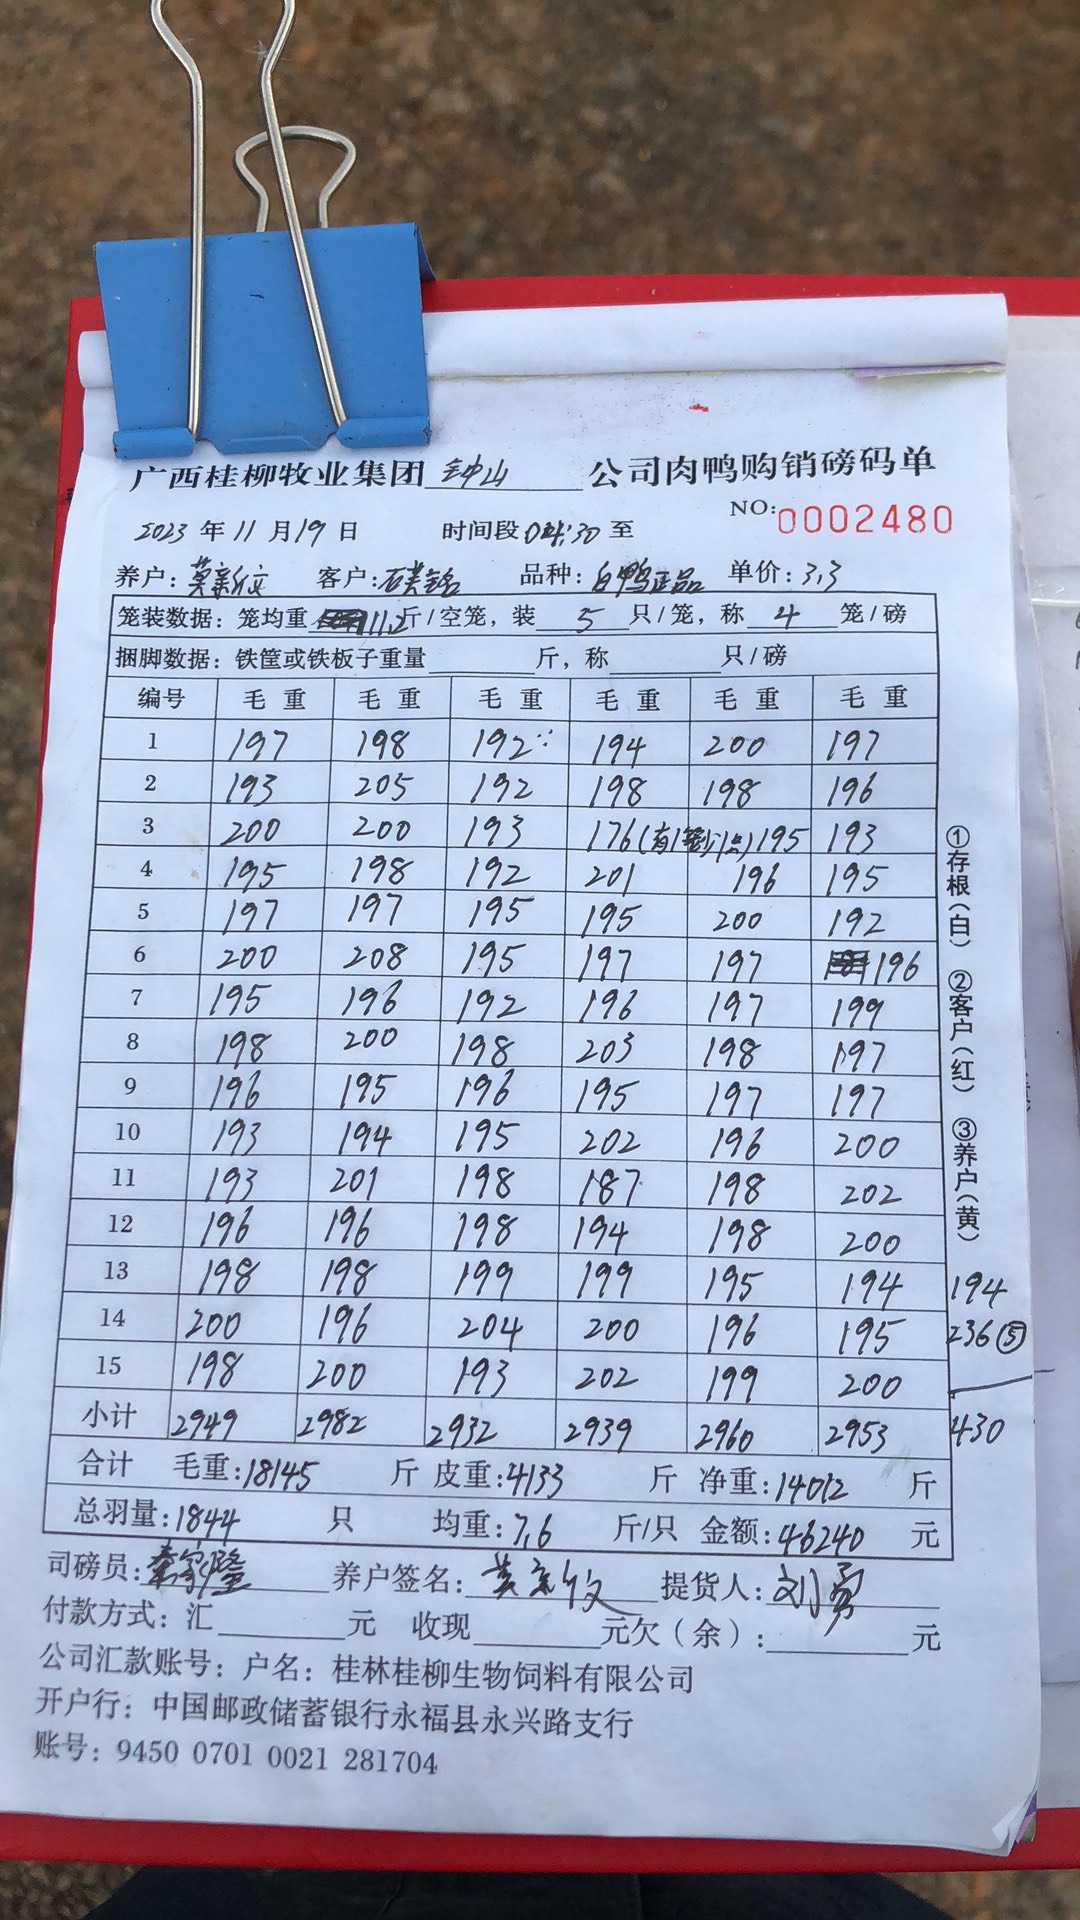 广西桂柳牧业集团 钟山 公司肉鸭购销磅码单
NO: 0002480
2023 年 11 月 19 日 时间段 04:30 至
养户: 莫新文 客户: 品种: 白鸭正品 单价: 3.3
笼装数据: 笼均重 11.2 斤/空笼, 装 5 只/笼, 称 4 笼/磅
捆脚数据: 铁筐或铁板子重量 斤, 称 只/磅
编号 毛重 毛重 毛重 毛重 毛重 毛重
1 197 198 192 194 200 197
2 193 205 192 198 198 196
3 200 200 193 176(有1笼少1只) 195 193
4 195 198 192 201 196 195
5 197 197 195 195 200 192
6 200 208 195 197 197 196
7 195 196 192 196 197 199
8 198 200 198 203 198 197
9 196 195 196 195 197 197
10 193 194 195 202 196 200
11 193 201 198 187 198 202
12 196 196 198 194 198 200
13 198 198 199 199 195 194 194
14 200 196 204 200 196 195 236⑤
15 198 200 193 202 199 200
小计 2949 2982 2932 2939 2960 2953 430
合计 毛重: 18145 斤 皮重: 4133 斤 净重: 14012 斤
总羽量: 1844 只 均重: 7.6 斤/只 金额: 46240 元
司磅员: 秦家隆 养户签名: 莫新文 提货人: 刘勇
付款方式: 汇 元 收现 元欠(余): 元
公司汇款账号: 户名: 桂林桂柳生物饲料有限公司
开户行: 中国邮政储蓄银行永福县永兴路支行
账号: 9450 0701 0021 281704
①存根(白) ②客户(红) ③养户(黄)